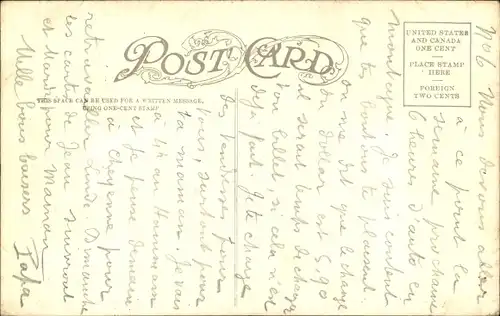 POST CARD
THIS SPACE CAN BE USED FOR A WRITTEN MESSAGE,
USING ONE-CENT STAMP
UNITED STATES
AND CANADA
ONE CENT
PLACE STAMP
HERE
FOREIGN
TWO CENTS
No 6 Nous devons aller
à ce point la
semaine prochaine
6 heures d'auto en
montagne. Je suis content
que tes vous te plaisent.
On me dit que le change
du dollar est 5,90
il serait temps de changer
ton billet, si cela n'est
déjà fait. Je te charge
des tendresses pour
tous, surtout pour
ta maman. Je vais
à 4h au Hammam
et je pense demain
à Cheyenne pour
retravailler Lundi. Dimanche
les cartes de Jean suivront
et Mardi pour Maman
Mille bons baisers
Papa